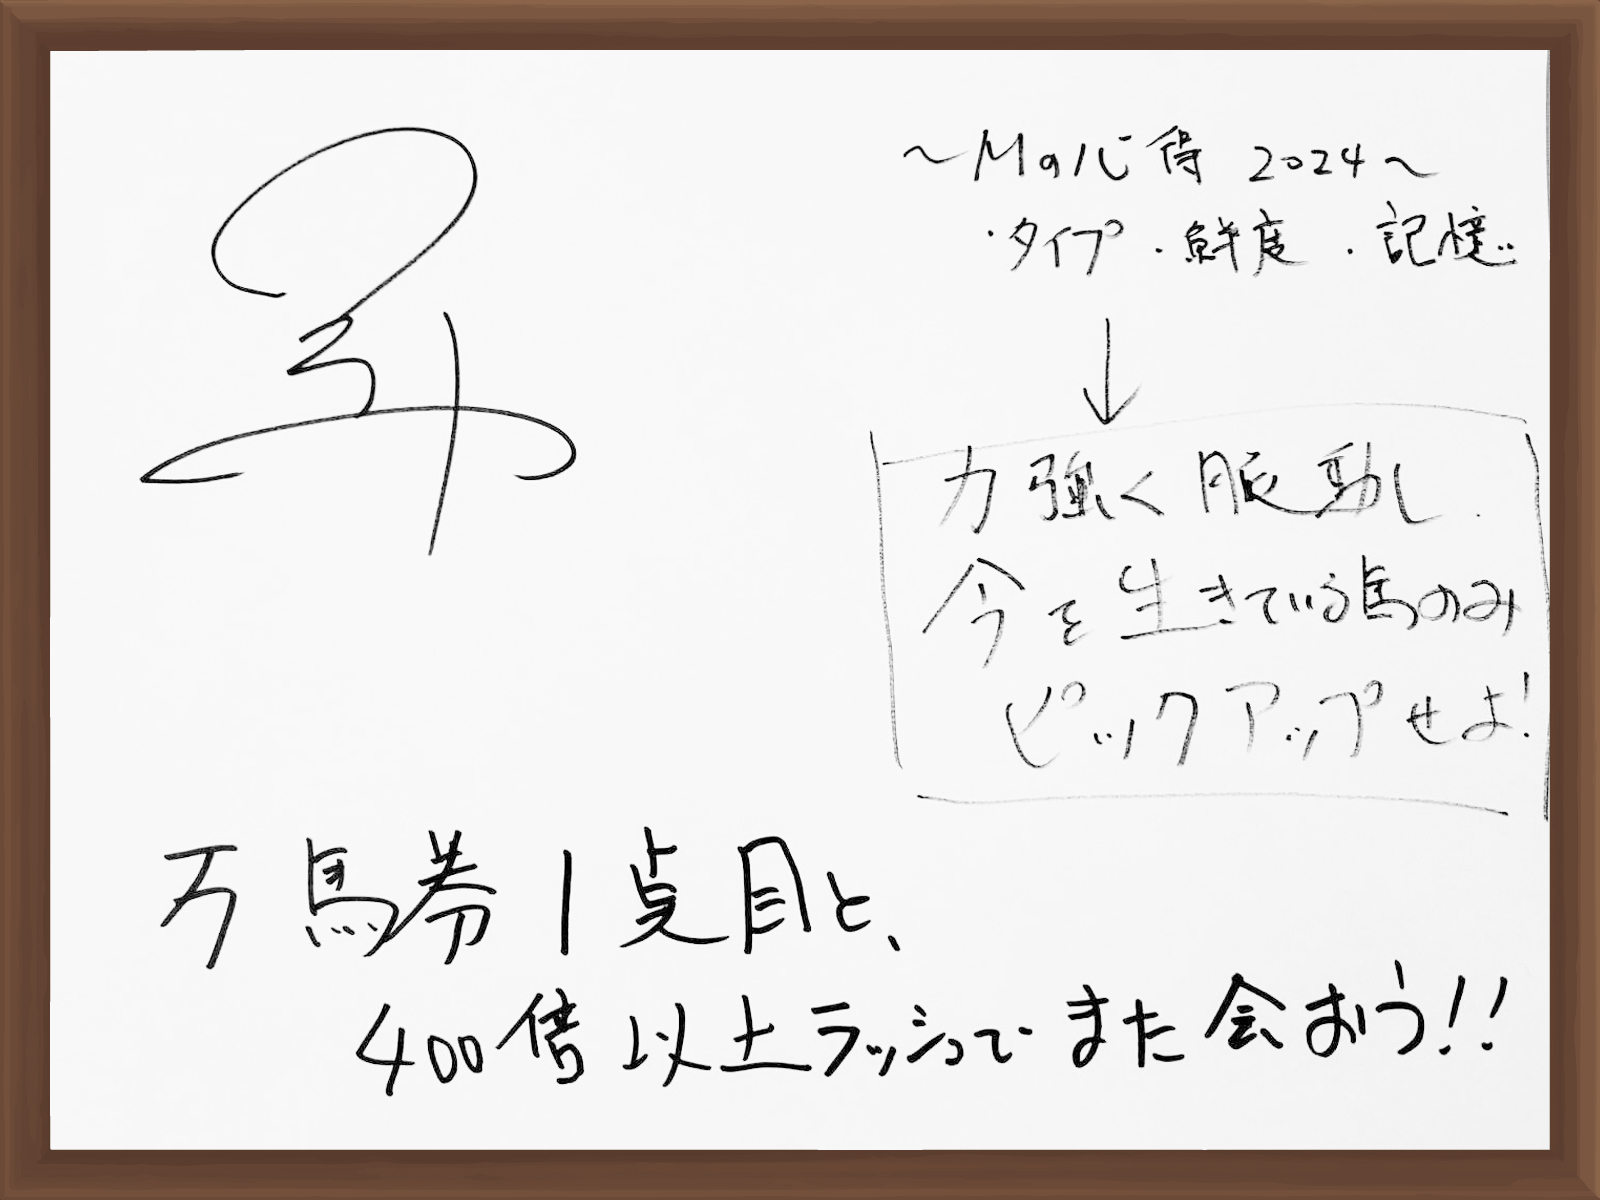 〜Mの心得 2024〜
・タイプ ・鮮度 ・記憶
力強く脈動し
今を生きている馬のみ
ピックアップせよ!
万馬券1点目と、
400倍以上ラッシュでまた会おう!!